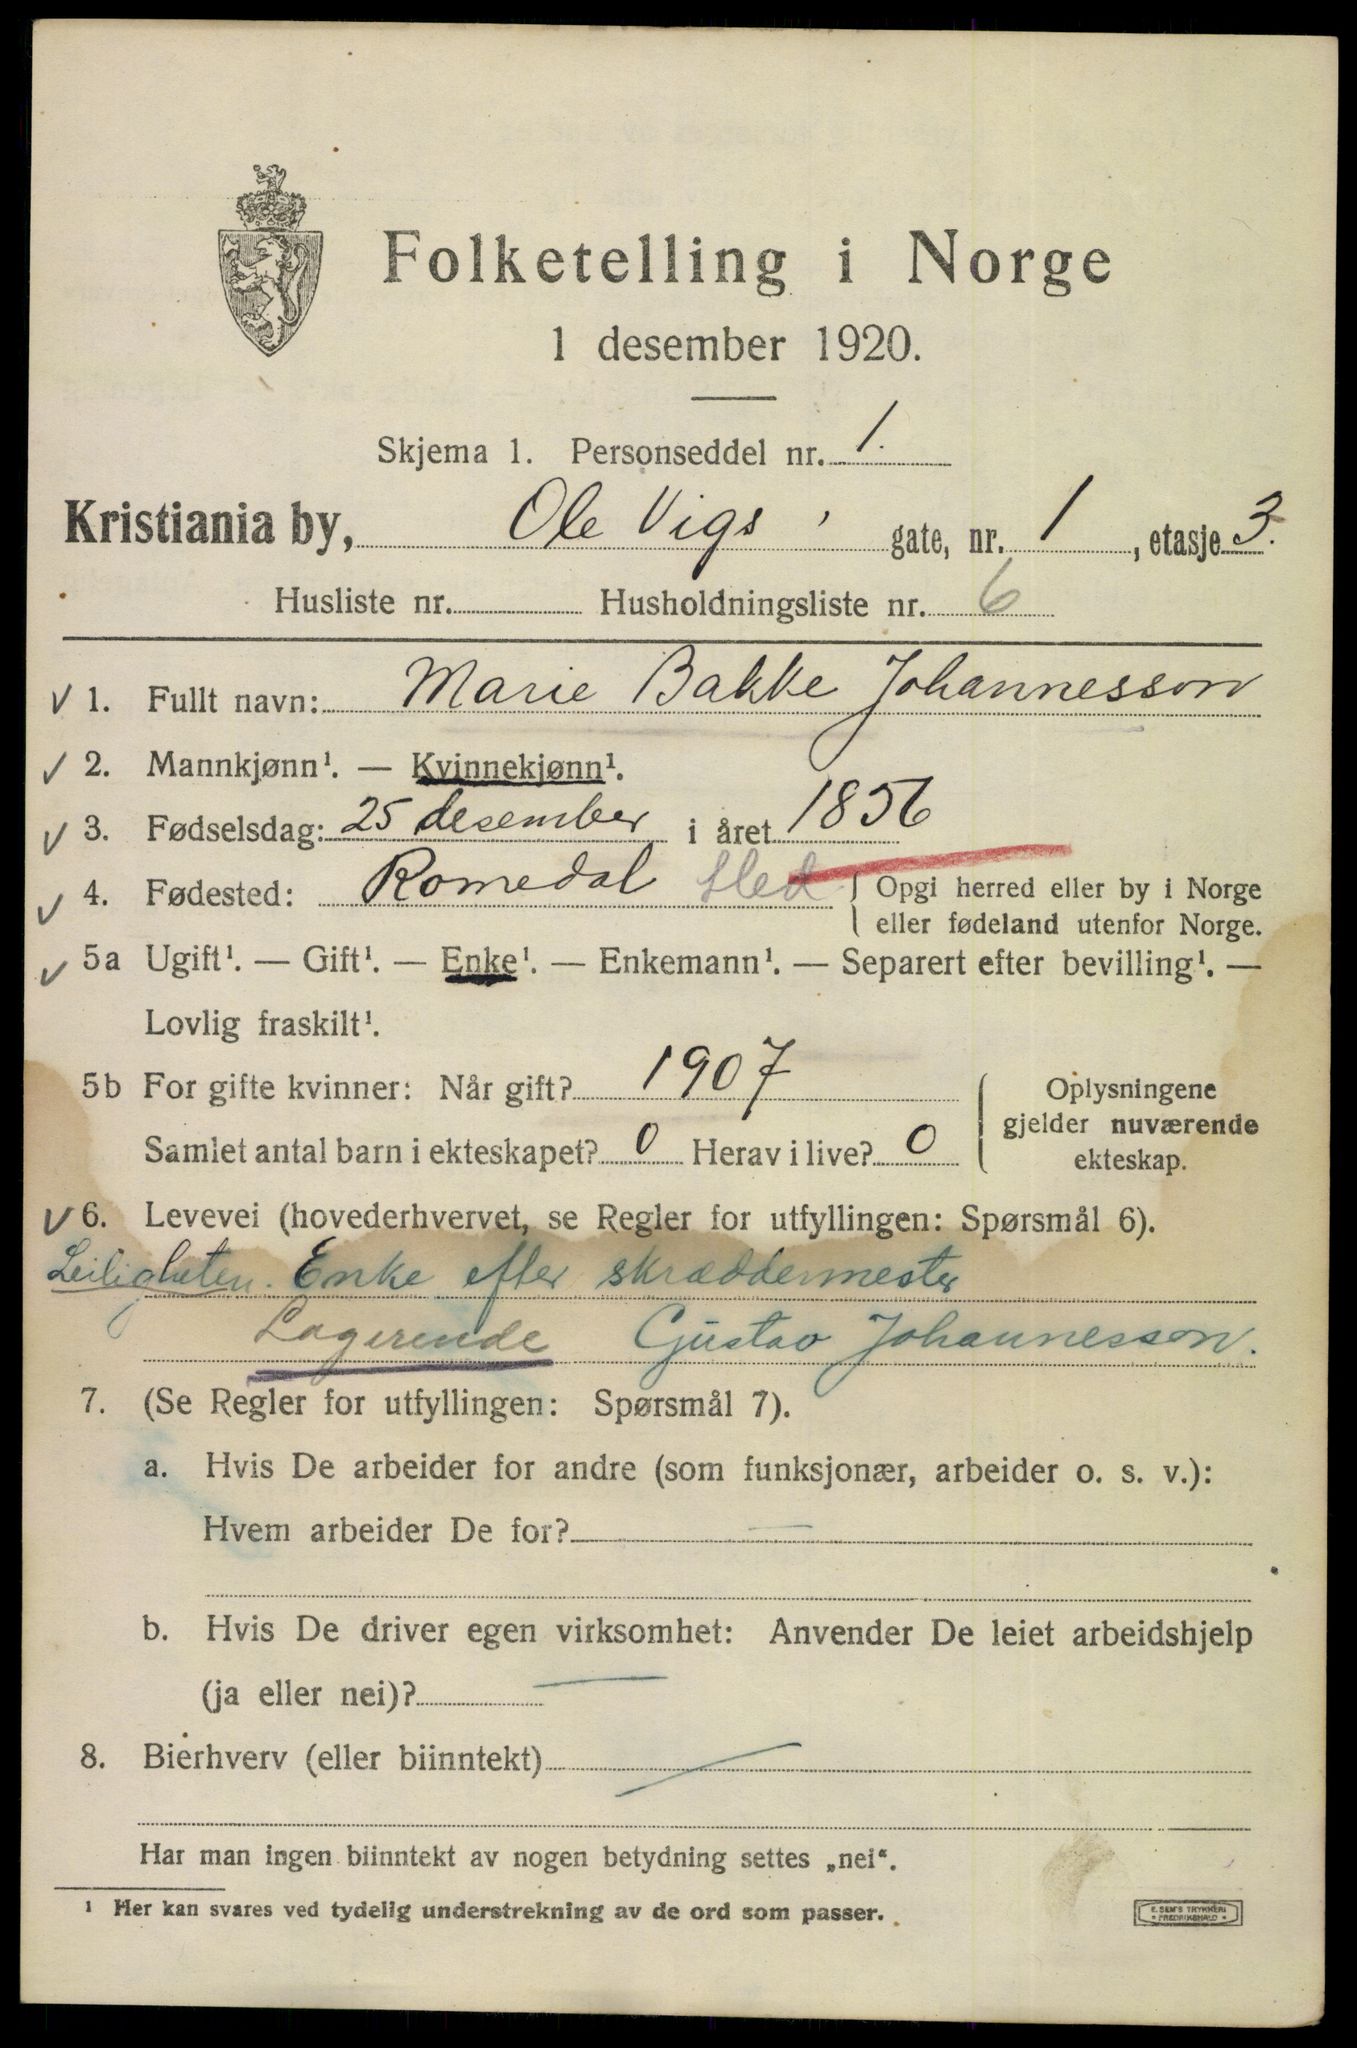 Folketelling i Norge
1 desember 1920.
Skjema 1. Personseddel nr. 1.
Kristiania by, Ole Vigs gate, nr. 1, etasje 3.
Husliste nr. Husholdningsliste nr. 6
1. Fullt navn: Marie Bakke Johannesson
2. Mannkjønn¹. — Kvinnekjønn¹.
3. Fødselsdag: 25 desember i året 1856
4. Fødested: Romedal Hed
Opgi herred eller by i Norge
eller fødeland utenfor Norge.
5a Ugift¹. — Gift¹. — Enke¹. — Enkemann¹. — Separert efter bevilling¹. —
Lovlig fraskilt¹.
5b For gifte kvinner: Når gift? 1907
Samlet antal barn i ekteskapet? 0 Herav i live? 0
Oplysningene
gjelder nuværende
ekteskap.
6. Levevei (hovederhvervet, se Regler for utfyllingen: Spørsmål 6).
Leiligheten. Enke efter skræddermester
Logerende Gustav Johannesson.
7. (Se Regler for utfyllingen: Spørsmål 7).
a. Hvis De arbeider for andre (som funksjonær, arbeider o. s. v.):
Hvem arbeider De for? —
b. Hvis De driver egen virksomhet: Anvender De leiet arbeidshjelp
(ja eller nei)? —
8. Bierhverv (eller biinntekt) —
Har man ingen biinntekt av nogen betydning settes „nei“.
¹ Her kan svares ved tydelig understrekning av de ord som passer.
E. SEM'S TRYKKERI
FREDRIKSHALD